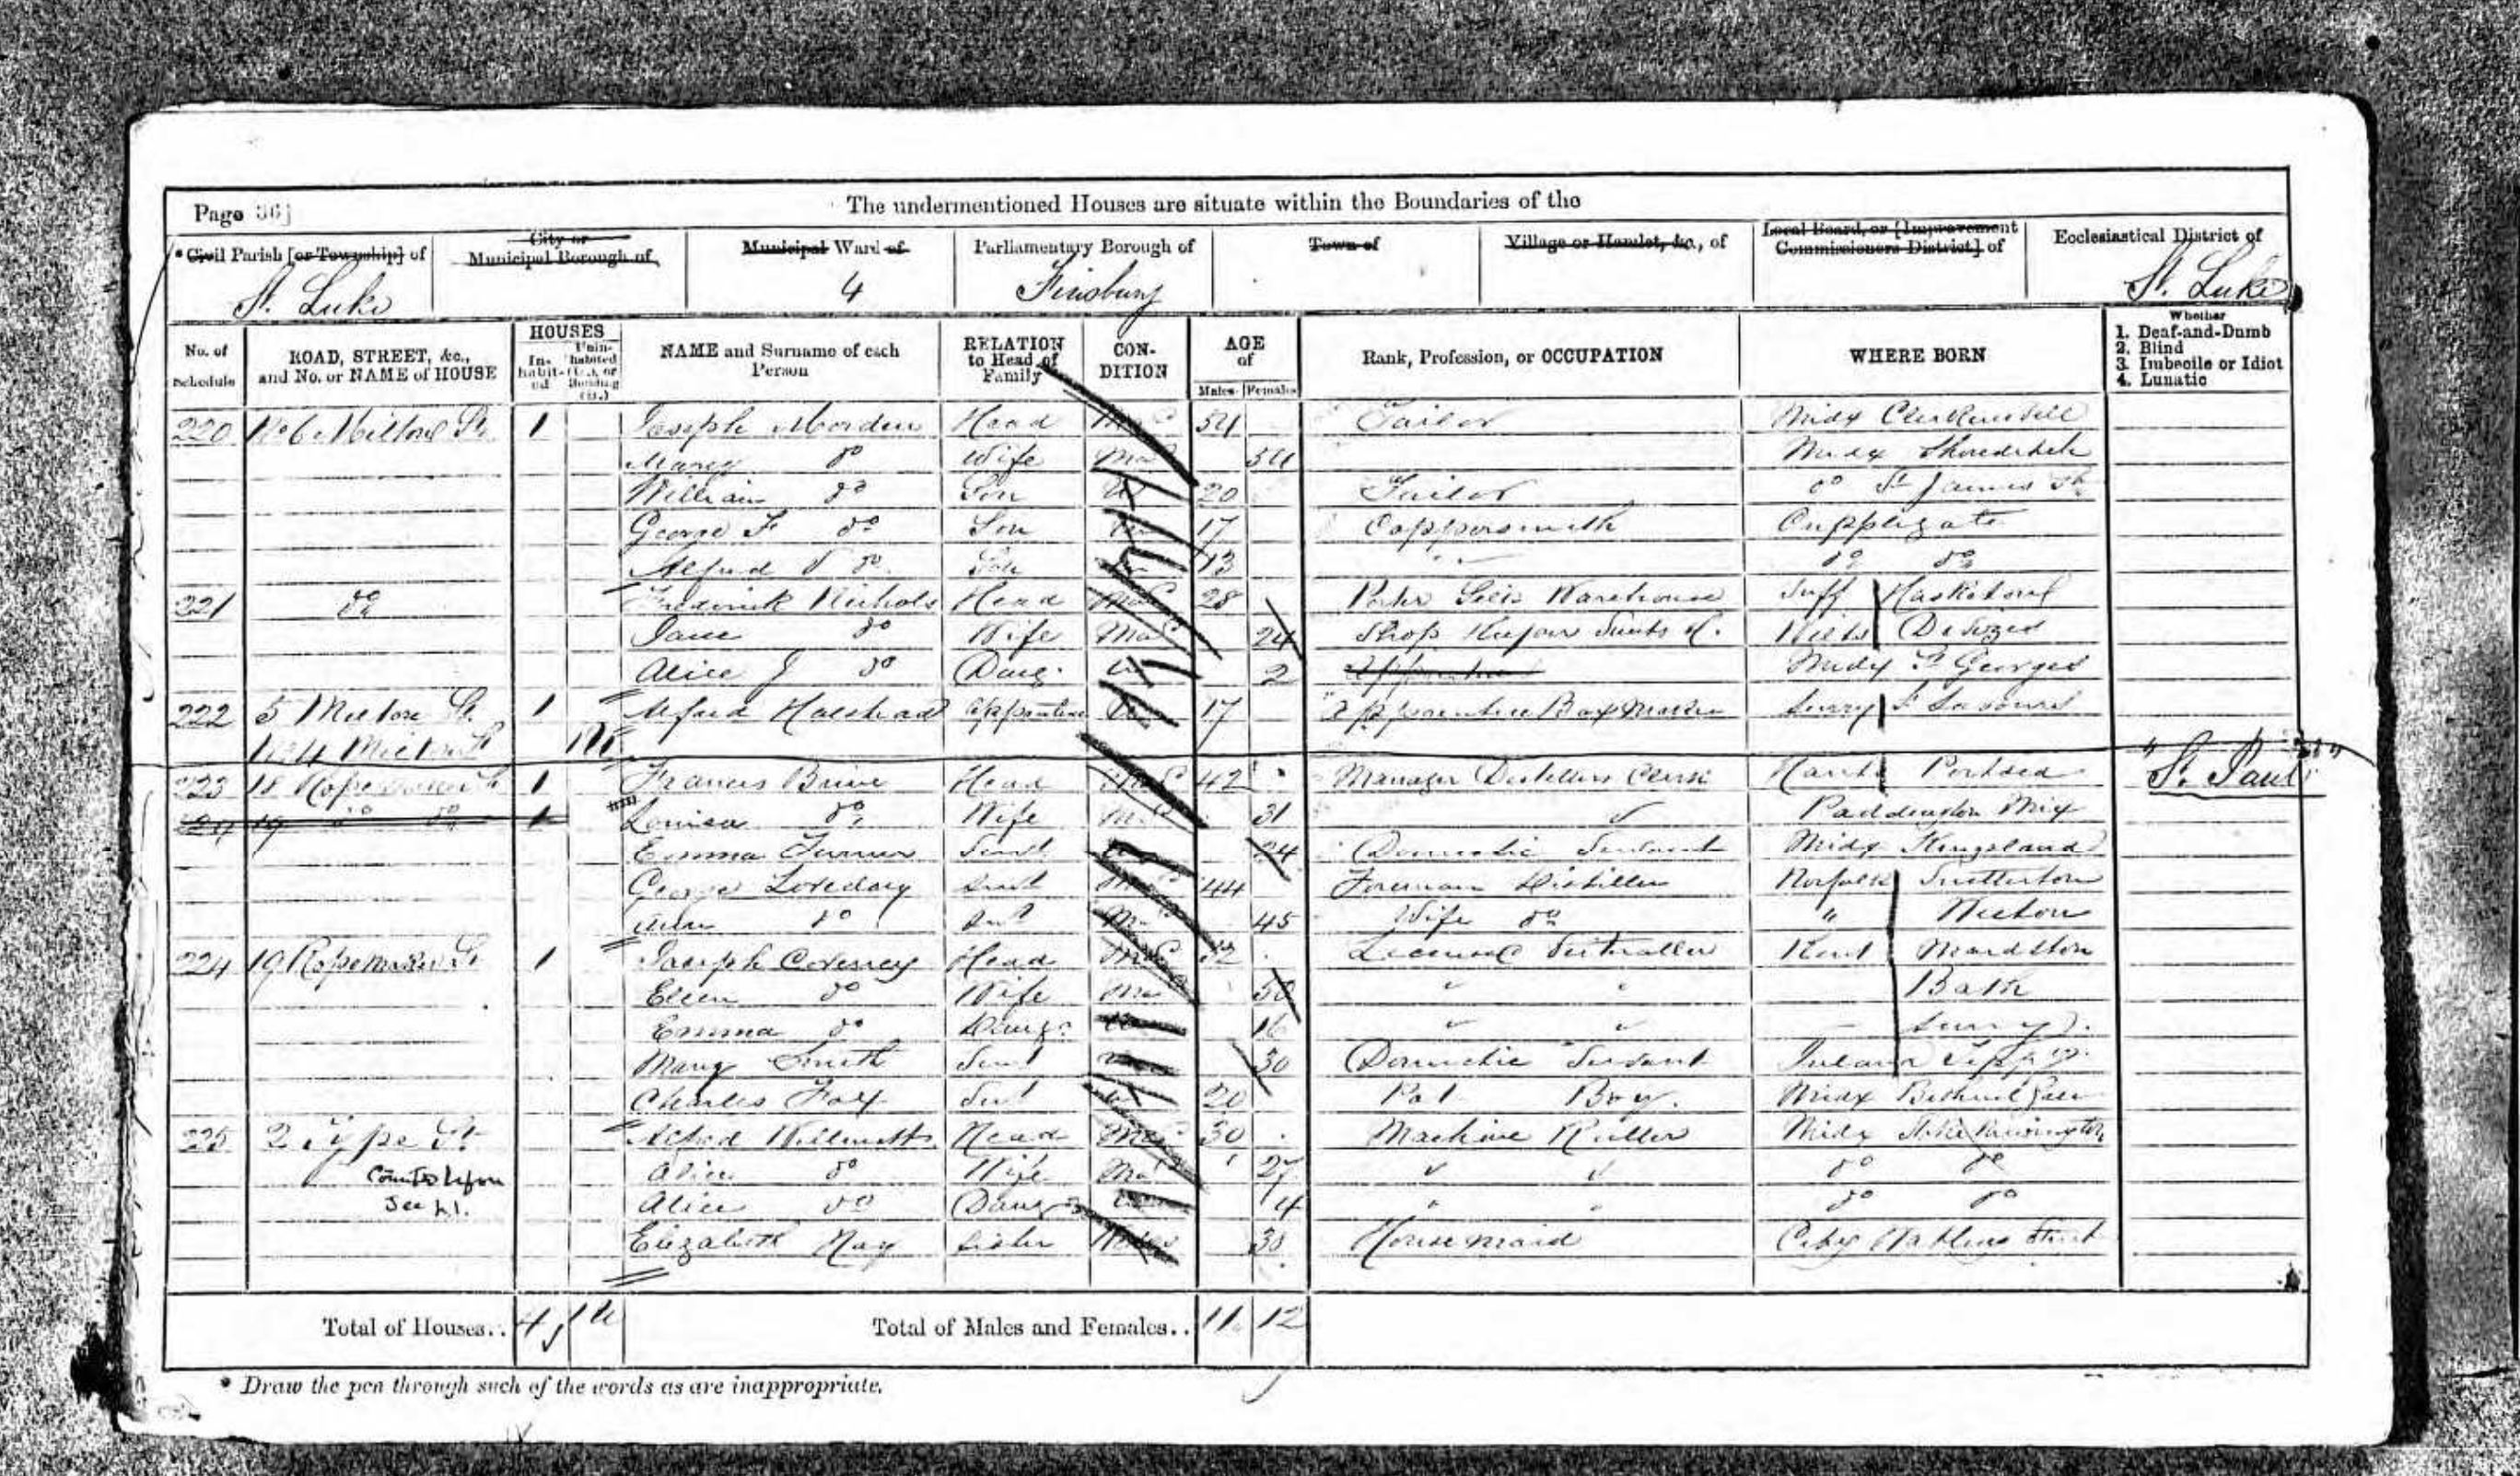 Page 36]
The undermentioned Houses are situate within the Boundaries of the
* Civil Parish [or Township] of
City or Municipal Borough of
Municipal Ward of
Parliamentary Borough of
Town of
Village or Hamlet, &c., of
Local Board, or [Improvement Commissioners District] of
Ecclesiastical District of
St. Luke 4 Finsbury St. Luke
No. of Schedule
ROAD, STREET, &c., and No. or NAME of HOUSE
HOUSES
Inhabited
Uninhabited (U.), or Building (B.)
NAME and Surname of each Person
RELATION to Head of Family
CONDITION
AGE of
Males Females
Rank, Profession, or OCCUPATION
WHERE BORN
Whether
1. Deaf-and-Dumb
2. Blind
3. Imbecile or Idiot
4. Lunatic
220 No 6 Milton St 1 Joseph Morden Head Mar 54 Tailor Midx Clerkenwell
Mary do Wife Mar 54 Midx Shoreditch
William do Son Un 20 Tailor do St James
George F do Son Un 17 Coppersmith Cripplegate
Alfred do Son Un 13 do do
221 do Frederick Nichols Head Mar 28 Porter Warehouse Suff Hasketon
Jane do Wife Mar 24 Shop Wilts Devizes
Alice J do Daug. Un 2 Midx St Georges
222 5 Milton St. 1 Alfred Halstead Apprentice Un 17 Apprentice Box Maker Surry St Saviours
No 4 Milton St 1 U
"St. Paul"
223 18 Ropemaker St 1 Francis Head Mar 42 Manager Distillers Clerk Hants Portsea
224 19 do do 1 Louisa do Wife Mar 31 Paddington Mix
Emma Turner Servt Un 24 Domestic Servant Midx Kingsland
George Loveday Servt Mar 44 Foreman Distillers Norfolk
Ann do Servt Mar 45 Wife do "
224 19 Ropemaker St 1 Joseph Coveney Head Mar 52 Licensed Victualler Kent
Ellen do Wife Mar 50 Bath
Emma do Daug. Un 16 Surry
Mary Smith Servt 30 Domestic Servant
Charles Fox Servt Un 20 Pot Boy. Midx Bethnal Green
225 2 Type St Alfred Willmotts Head Mar 30 Machine Ruller Midx Stoke Newington
Alice do Wife Mar 27 do do
Counted before
See
Alice do Daug. Un 4 do do
Elizabeth May Sister 30 Housemaid City Watling Street
Total of Houses.. 4 1 U Total of Males and Females.. 11 12
* Draw the pen through such of the words as are inappropriate.